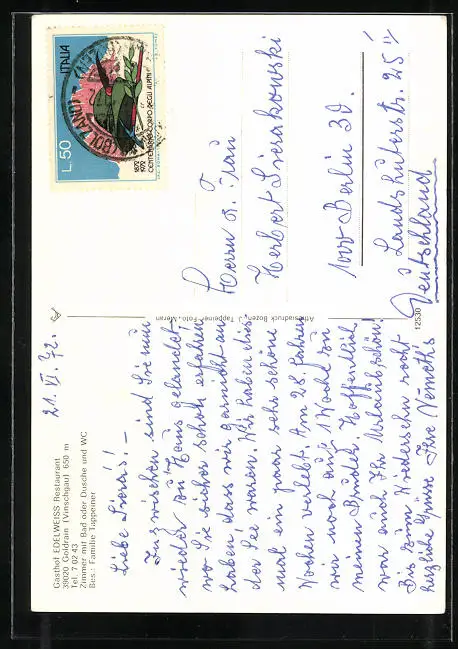 Gasthof EDELWEISS Restaurant
39020 Goldrain (Vinschgau) 650 m
Tel. 7 02 43
Zimmer mit Bad oder Dusche und WC
Bes.: Familie Tappeiner
21. VI. 72.
Liebe Sieras! –
Inzwischen sind Sie nun
wieder zu Haus gelandet
wo Sie sicher schon erfahren
haben dass wir garnicht an
der See waren. Wir haben dies
mal ein paar sehr schöne
Wochen verlebt. Am 28. fahren
wir noch auf 1 Woche zu
meinem Bruder. Hoffentlich
war auch Ihr Urlaub schön!
Bis zum Wiedersehn recht
herzliche Grüsse Ihre Nemeth's
Artesiadruck Bozen, J. Tappeiner Foto, Meran
12530
ITALIA
L.50
1872
1972
CENTENARIO CORPO DEGLI ALPINI
(BOLZANO)
Herrn u. Frau
Herbert Sierakowski
1000 Berlin 30.
Landshuterstr. 25 II
Deutschland